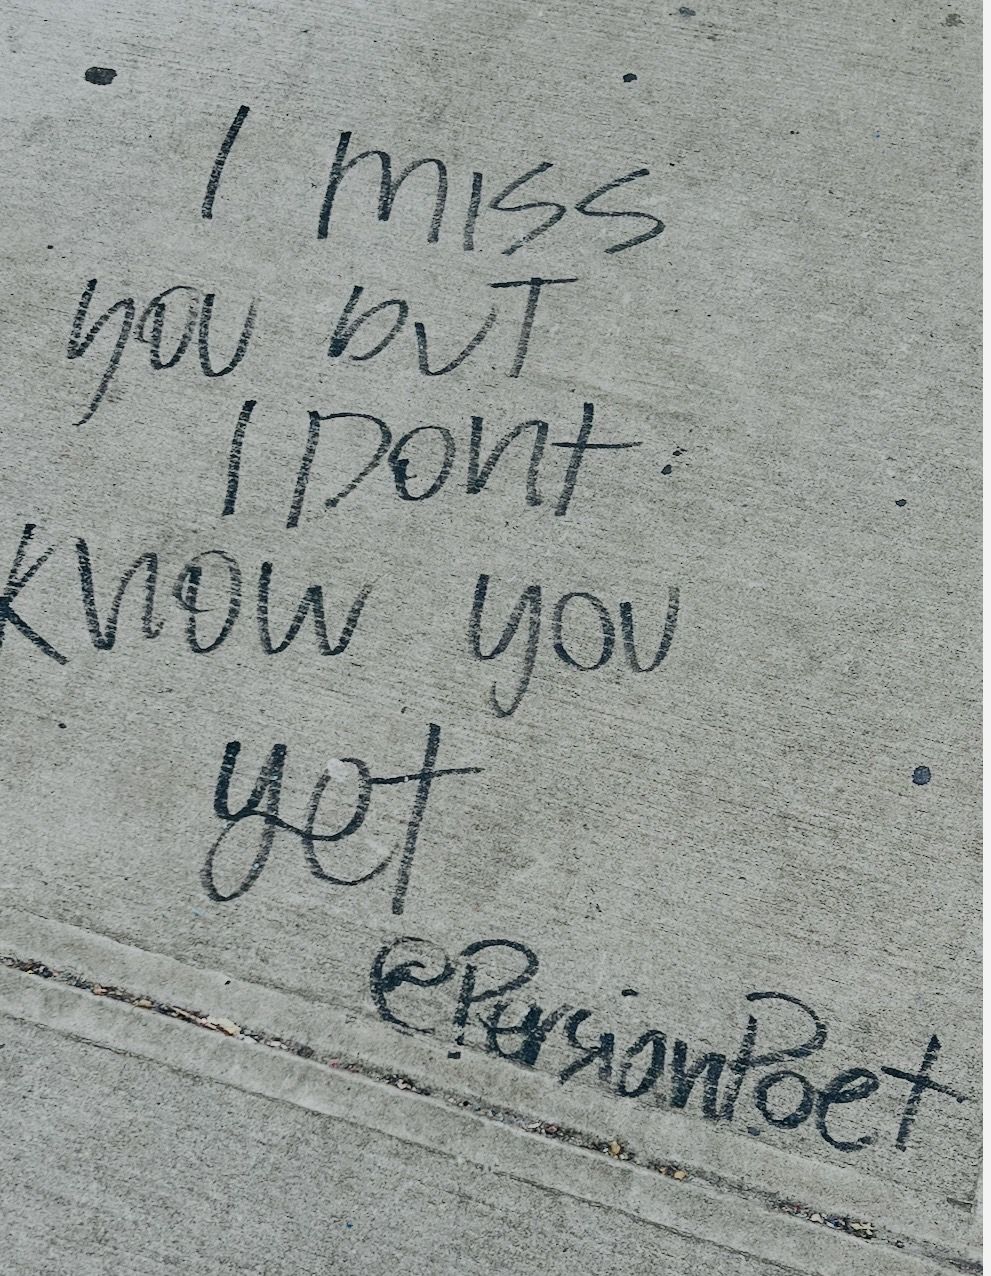 I miss
you buT
I Dont
know you
yet
@PersianPoet